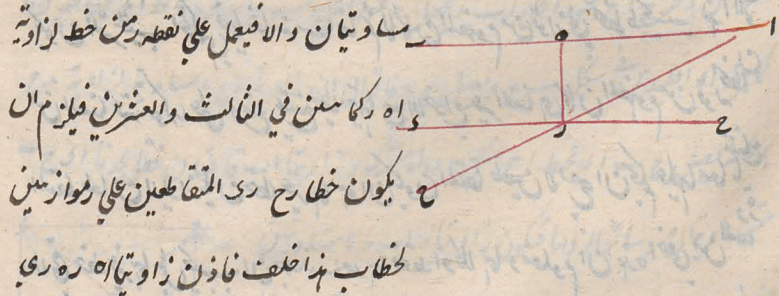 مساويتان والا فيعمل علي نقطه ر من خط لزاوية
اه ر كما بين في الثالث والعشرين فيلزم ان
يكون خطا رح رى المتقاطعين علي ر موازيين
لخط اب هذا خلف فاذن زاويتا اه ر ه ري
ا ه ر ح ح